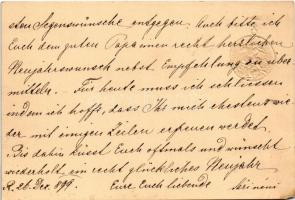 sten Segenswünsche entgegen. Auch bitte ich
Euch dem guten Papa einen recht herzlichen
Neujahrswunsch nebst Empfehlung zu über-
mitteln. Für heute muss ich schliessen
indem ich hoffe, dass Ihr mich ehestens wie-
der mit einigen Zeilen erfreuen werdet.
Bis dahin küsst Euch oftmals und wünscht
wiederholt ein recht glückliches Neujahr
26. Dez. 899. Eure Euch liebende